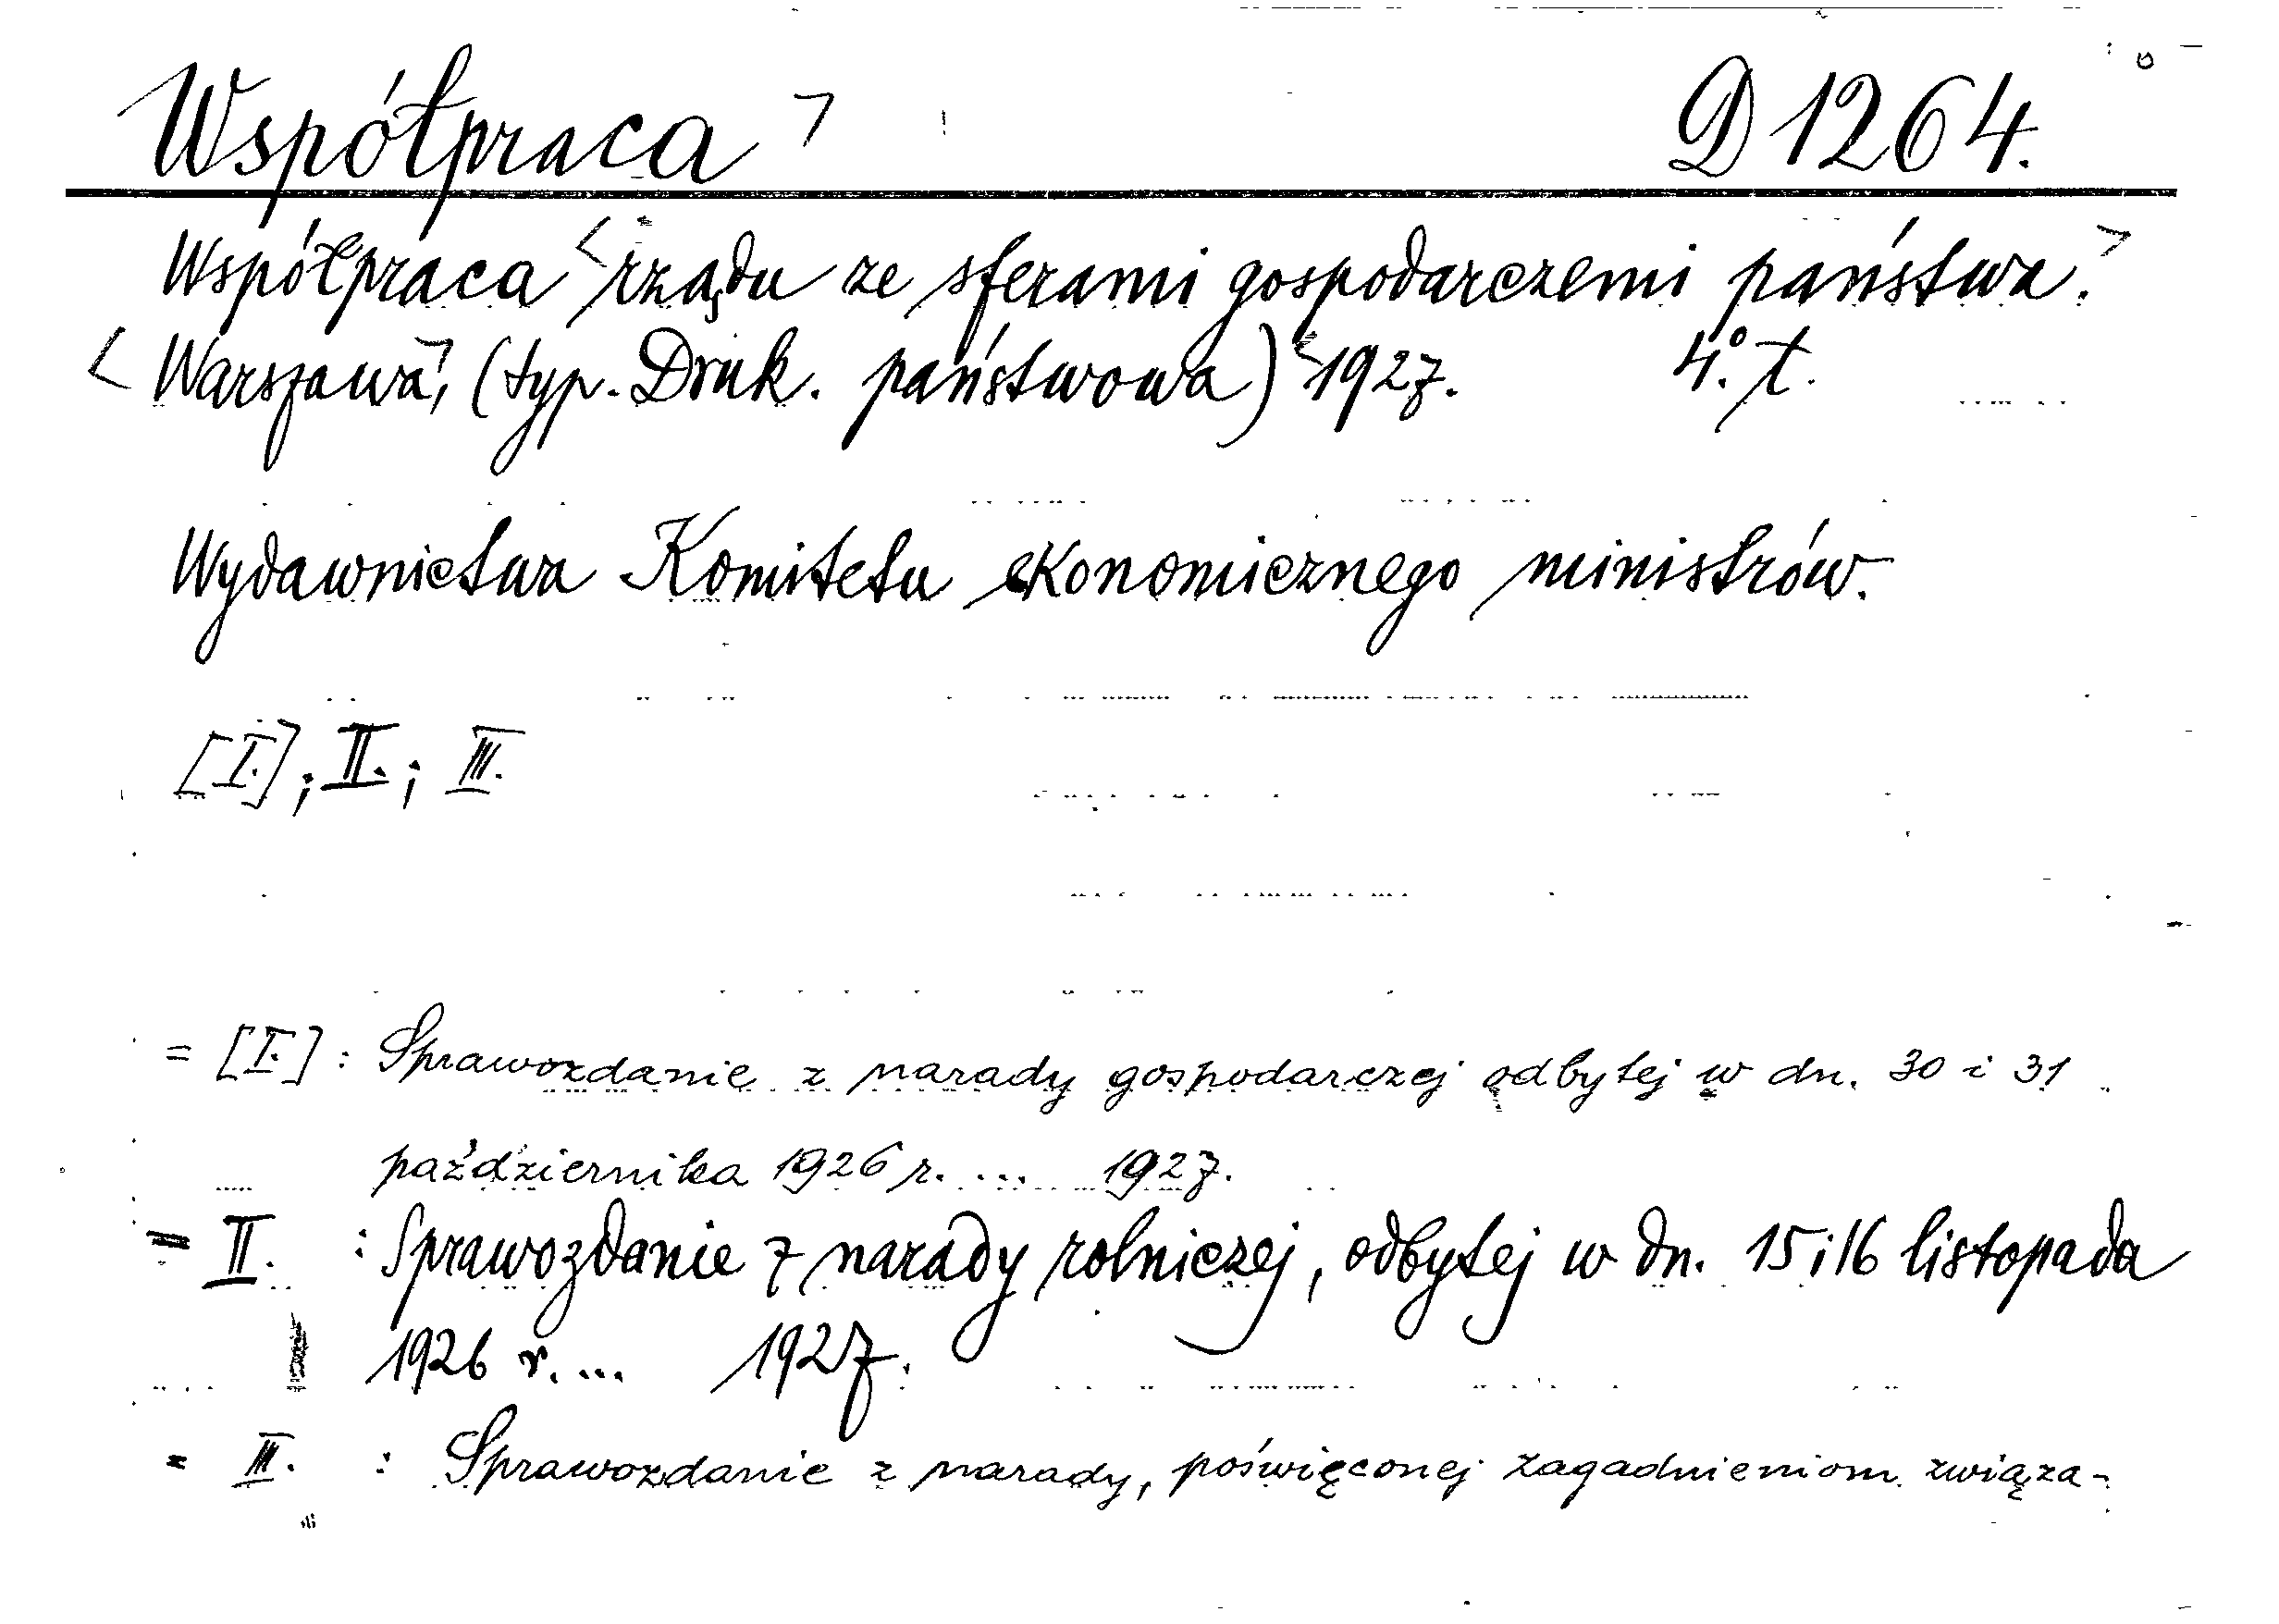 Współpraca ¬ D 1264.
Współpraca <rządu ze sferami gospodarczemi państwa.>
<Warszawa¬, (typ. Druk. państwowa) <1927. 4.° t.
Wydawnictwa Komitetu ekonomicznego ministrów.
[I.]; II.; III.
= [I.] : Sprawozdanie z narady gospodarczej odbytej w dn. 30 i 31
października 1926 r. ... 1927.
= II. : Sprawozdanie z narady rolniczej, odbytej w dn. 15 i 16 listopada
1926 r. ... 1927.
= III. : Sprawozdanie z narady, poświęconej zagadnieniom związa-